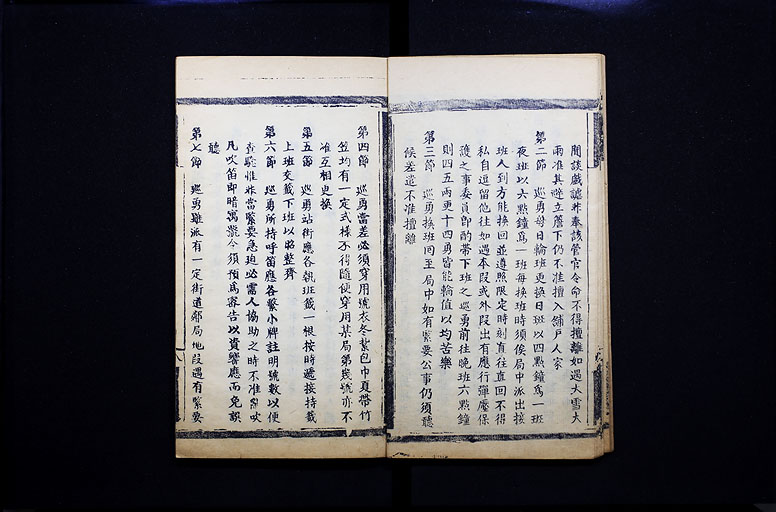 閒談戲謔非奉該管官令命不得擅離如遇大雪大
雨准其避立簷下仍不准擅入舖戶人家
第二節　巡勇每日輪班更換日班以四點鐘為一班
夜班以六點鐘為一班每換班時須俟局中派出接
班人到方能換回並遵照限定時刻直往直回不得
私自逗留他往如遇本段或外段出有應行彈壓保
護之事委員卽酌帶下班之巡勇前往晚班六點鐘
則四五兩更十四勇皆能輪值以均苦樂
第三節　巡勇換班囘至局中如有緊要公事仍須聽
候差遣不准擅離
第四節　巡勇當差必須穿用號衣冬紮包巾夏帶竹
笠均有一定式樣不得隨便穿用某局第幾號亦不
准互相更換
第五節　巡勇站街應各執班籤一根按時遞接持籤
上班交籤下班以昭整齊
第六節　巡勇所持呼笛應各繫小牌註明號數以便
查驗惟非當緊要急迫必需人協助之時不准常吹
凡吹笛卽暗寓警令須預為密告以資響應而免誤
聽
第七節　巡勇雖派有一定街道鄰局地段遇有緊要